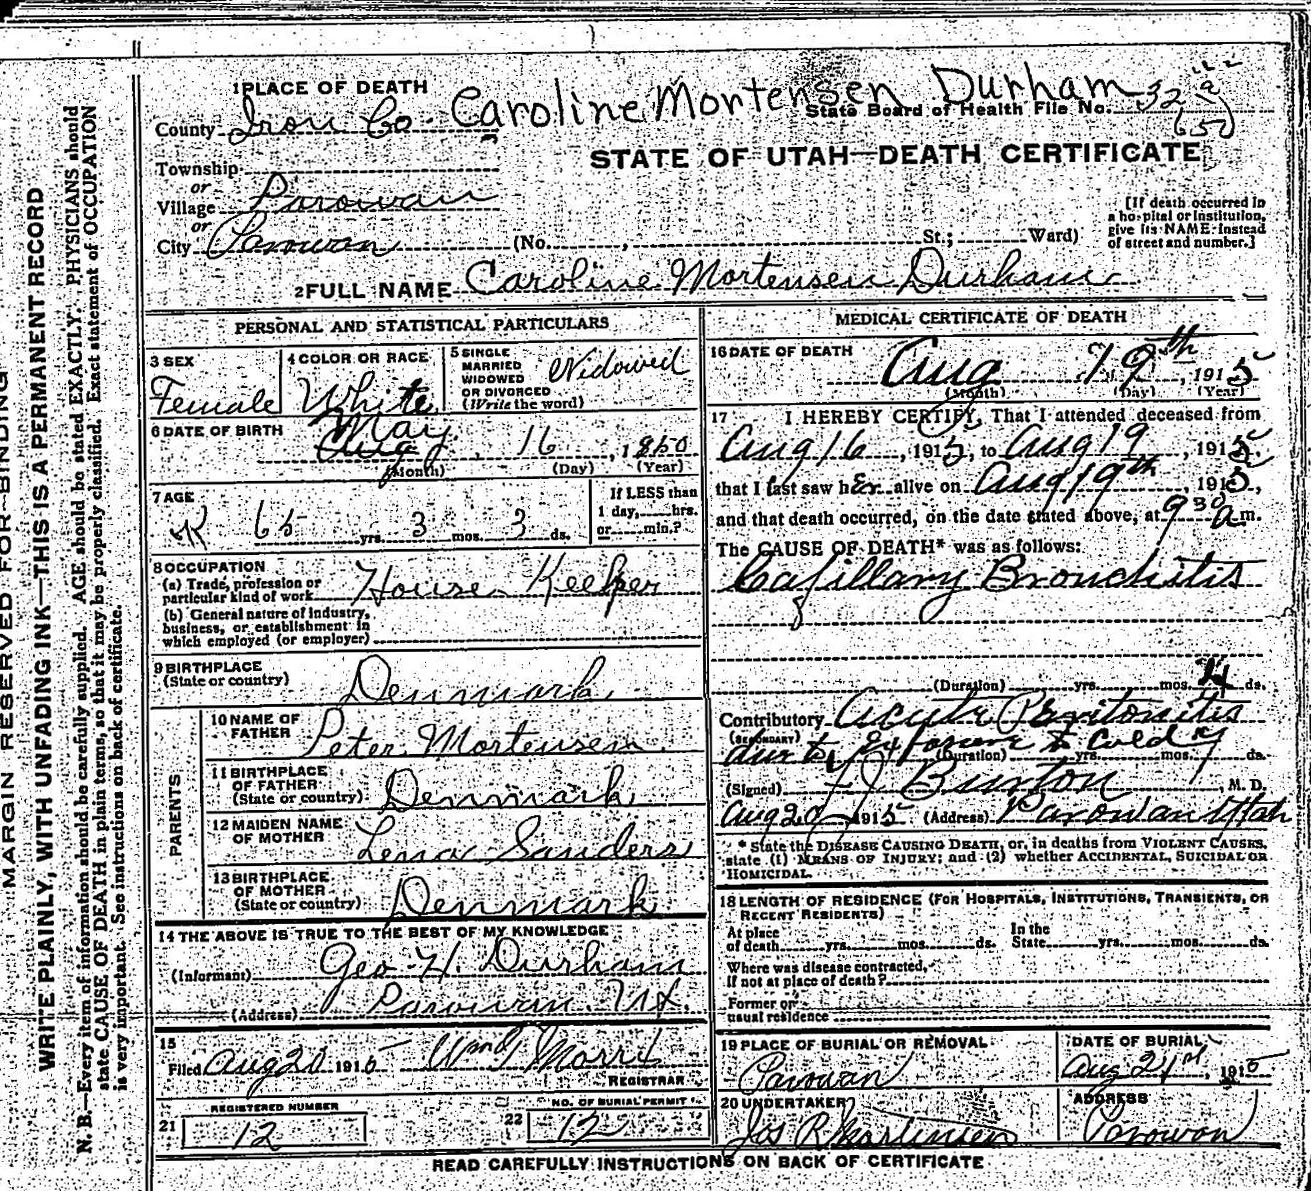 1 PLACE OF DEATH
Caroline Mortensen Durham
County Iron Co.
State Board of Health File No. 32
STATE OF UTAH—DEATH CERTIFICATE
Township
or
Village Parowan
or
City Parowan (No. , St.; Ward)
[If death occurred in
a hospital or institution,
give its NAME instead
of street and number.]
2 FULL NAME Caroline Mortensen Durham
PERSONAL AND STATISTICAL PARTICULARS
3 SEX
Female
4 COLOR OR RACE
White
5 SINGLE
MARRIED
WIDOWED
OR DIVORCED
(Write the word)
Widowed
6 DATE OF BIRTH
May
Aug 16, 1850
(Month) (Day) (Year)
7 AGE
65 yrs. 3 mos. 3 ds.
If LESS than
1 day, hrs.
or min.?
8 OCCUPATION
(a) Trade, profession or
particular kind of work House Keeper
(b) General nature of industry,
business, or establishment in
which employed (or employer)
9 BIRTHPLACE
(State or country)
Denmark
PARENTS
10 NAME OF
FATHER
Peter Mortensen.
11 BIRTHPLACE
OF FATHER
(State or country) Denmark
12 MAIDEN NAME
OF MOTHER
Lena Sanders
13 BIRTHPLACE
OF MOTHER
(State or country) Denmark
14 THE ABOVE IS TRUE TO THE BEST OF MY KNOWLEDGE
(Informant) Geo H. Durham
(Address) Parowan Ut.
15
Filed Aug 20 1915 Wm Morris
REGISTRAR
21 REGISTERED NUMBER
12
22 NO. OF BURIAL PERMIT
12
MEDICAL CERTIFICATE OF DEATH
16 DATE OF DEATH
Aug 19th, 1915
(Month) (Day) (Year)
17 I HEREBY CERTIFY, That I attended deceased from
Aug 16, 1915, to Aug 19, 1915.
that I last saw her alive on Aug 19th, 1915,
and that death occurred, on the date stated above, at 9 30 a m.
The CAUSE OF DEATH* was as follows:
Capillary Bronchitis
(Duration) yrs. mos. 4 ds.
Contributory Acute Peritonitis
(SECONDARY)
due to Exposure to Cold
(Duration) yrs. mos. ds.
(Signed) Burton, M. D.
Aug 20 1915 (Address) Parowan Utah
* State the DISEASE CAUSING DEATH, or, in deaths from VIOLENT CAUSES,
state (1) MEANS OF INJURY; and (2) whether ACCIDENTAL, SUICIDAL OR
HOMICIDAL.
18 LENGTH OF RESIDENCE (FOR HOSPITALS, INSTITUTIONS, TRANSIENTS, OR
RECENT RESIDENTS)
At place
of death yrs. mos. ds.
In the
State yrs. mos. ds.
Where was disease contracted,
if not at place of death?
Former or
usual residence
19 PLACE OF BURIAL OR REMOVAL
Parowan
DATE OF BURIAL
Aug 21st, 1915
20 UNDERTAKER
Jos R Mortensen
ADDRESS
Parowan
READ CAREFULLY INSTRUCTIONS ON BACK OF CERTIFICATE
MARGIN RESERVED FOR BINDING
WRITE PLAINLY, WITH UNFADING INK—THIS IS A PERMANENT RECORD
N. B.—Every item of information should be carefully supplied. AGE should be stated EXACTLY. PHYSICIANS should
state CAUSE OF DEATH in plain terms, so that it may be properly classified. Exact statement of OCCUPATION
is very important. See instructions on back of certificate.